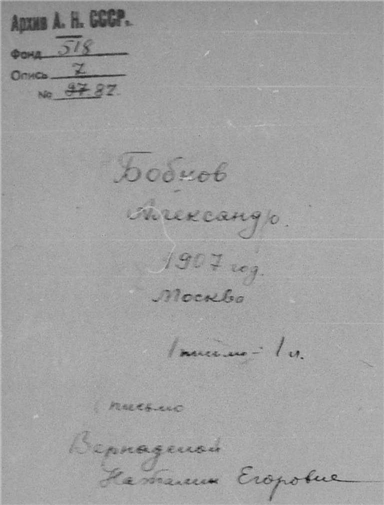 Архив А. Н. СССР.
Фонд 518
Опись 7
№ 97 82.
Бобнов
Александр.
1907 год.
Москва
1 письмо - 1 л.
( письмо
Вернадской
Наталии Егоровне